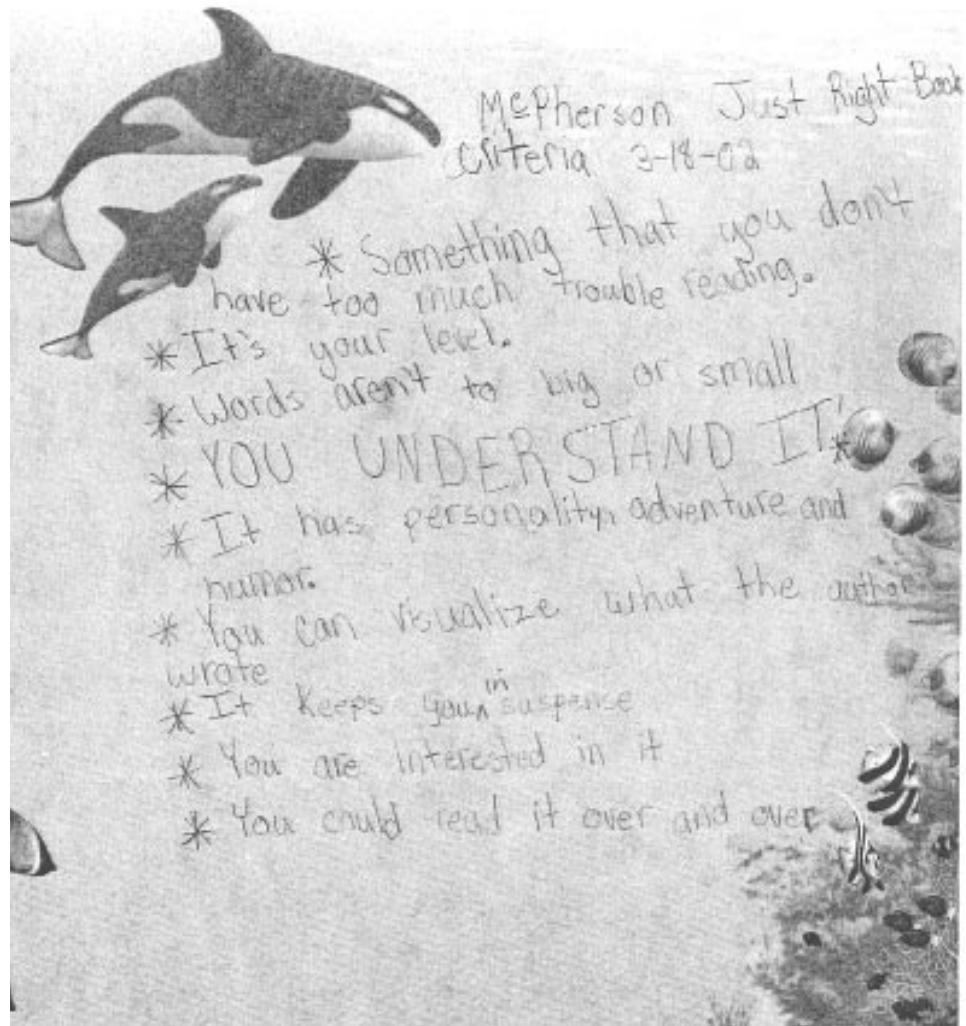 McPherson Just Right Book
Criteria 3-18-02
* Something that you don't
have too much trouble reading.
* It's your level.
* Words aren't to big or small
* YOU UNDERSTAND IT! *
* It has personality, adventure and
humor.
* You can visualize what the author
wrote
* It keeps you ^in suspense
* You are interested in it
* You could read it over and over